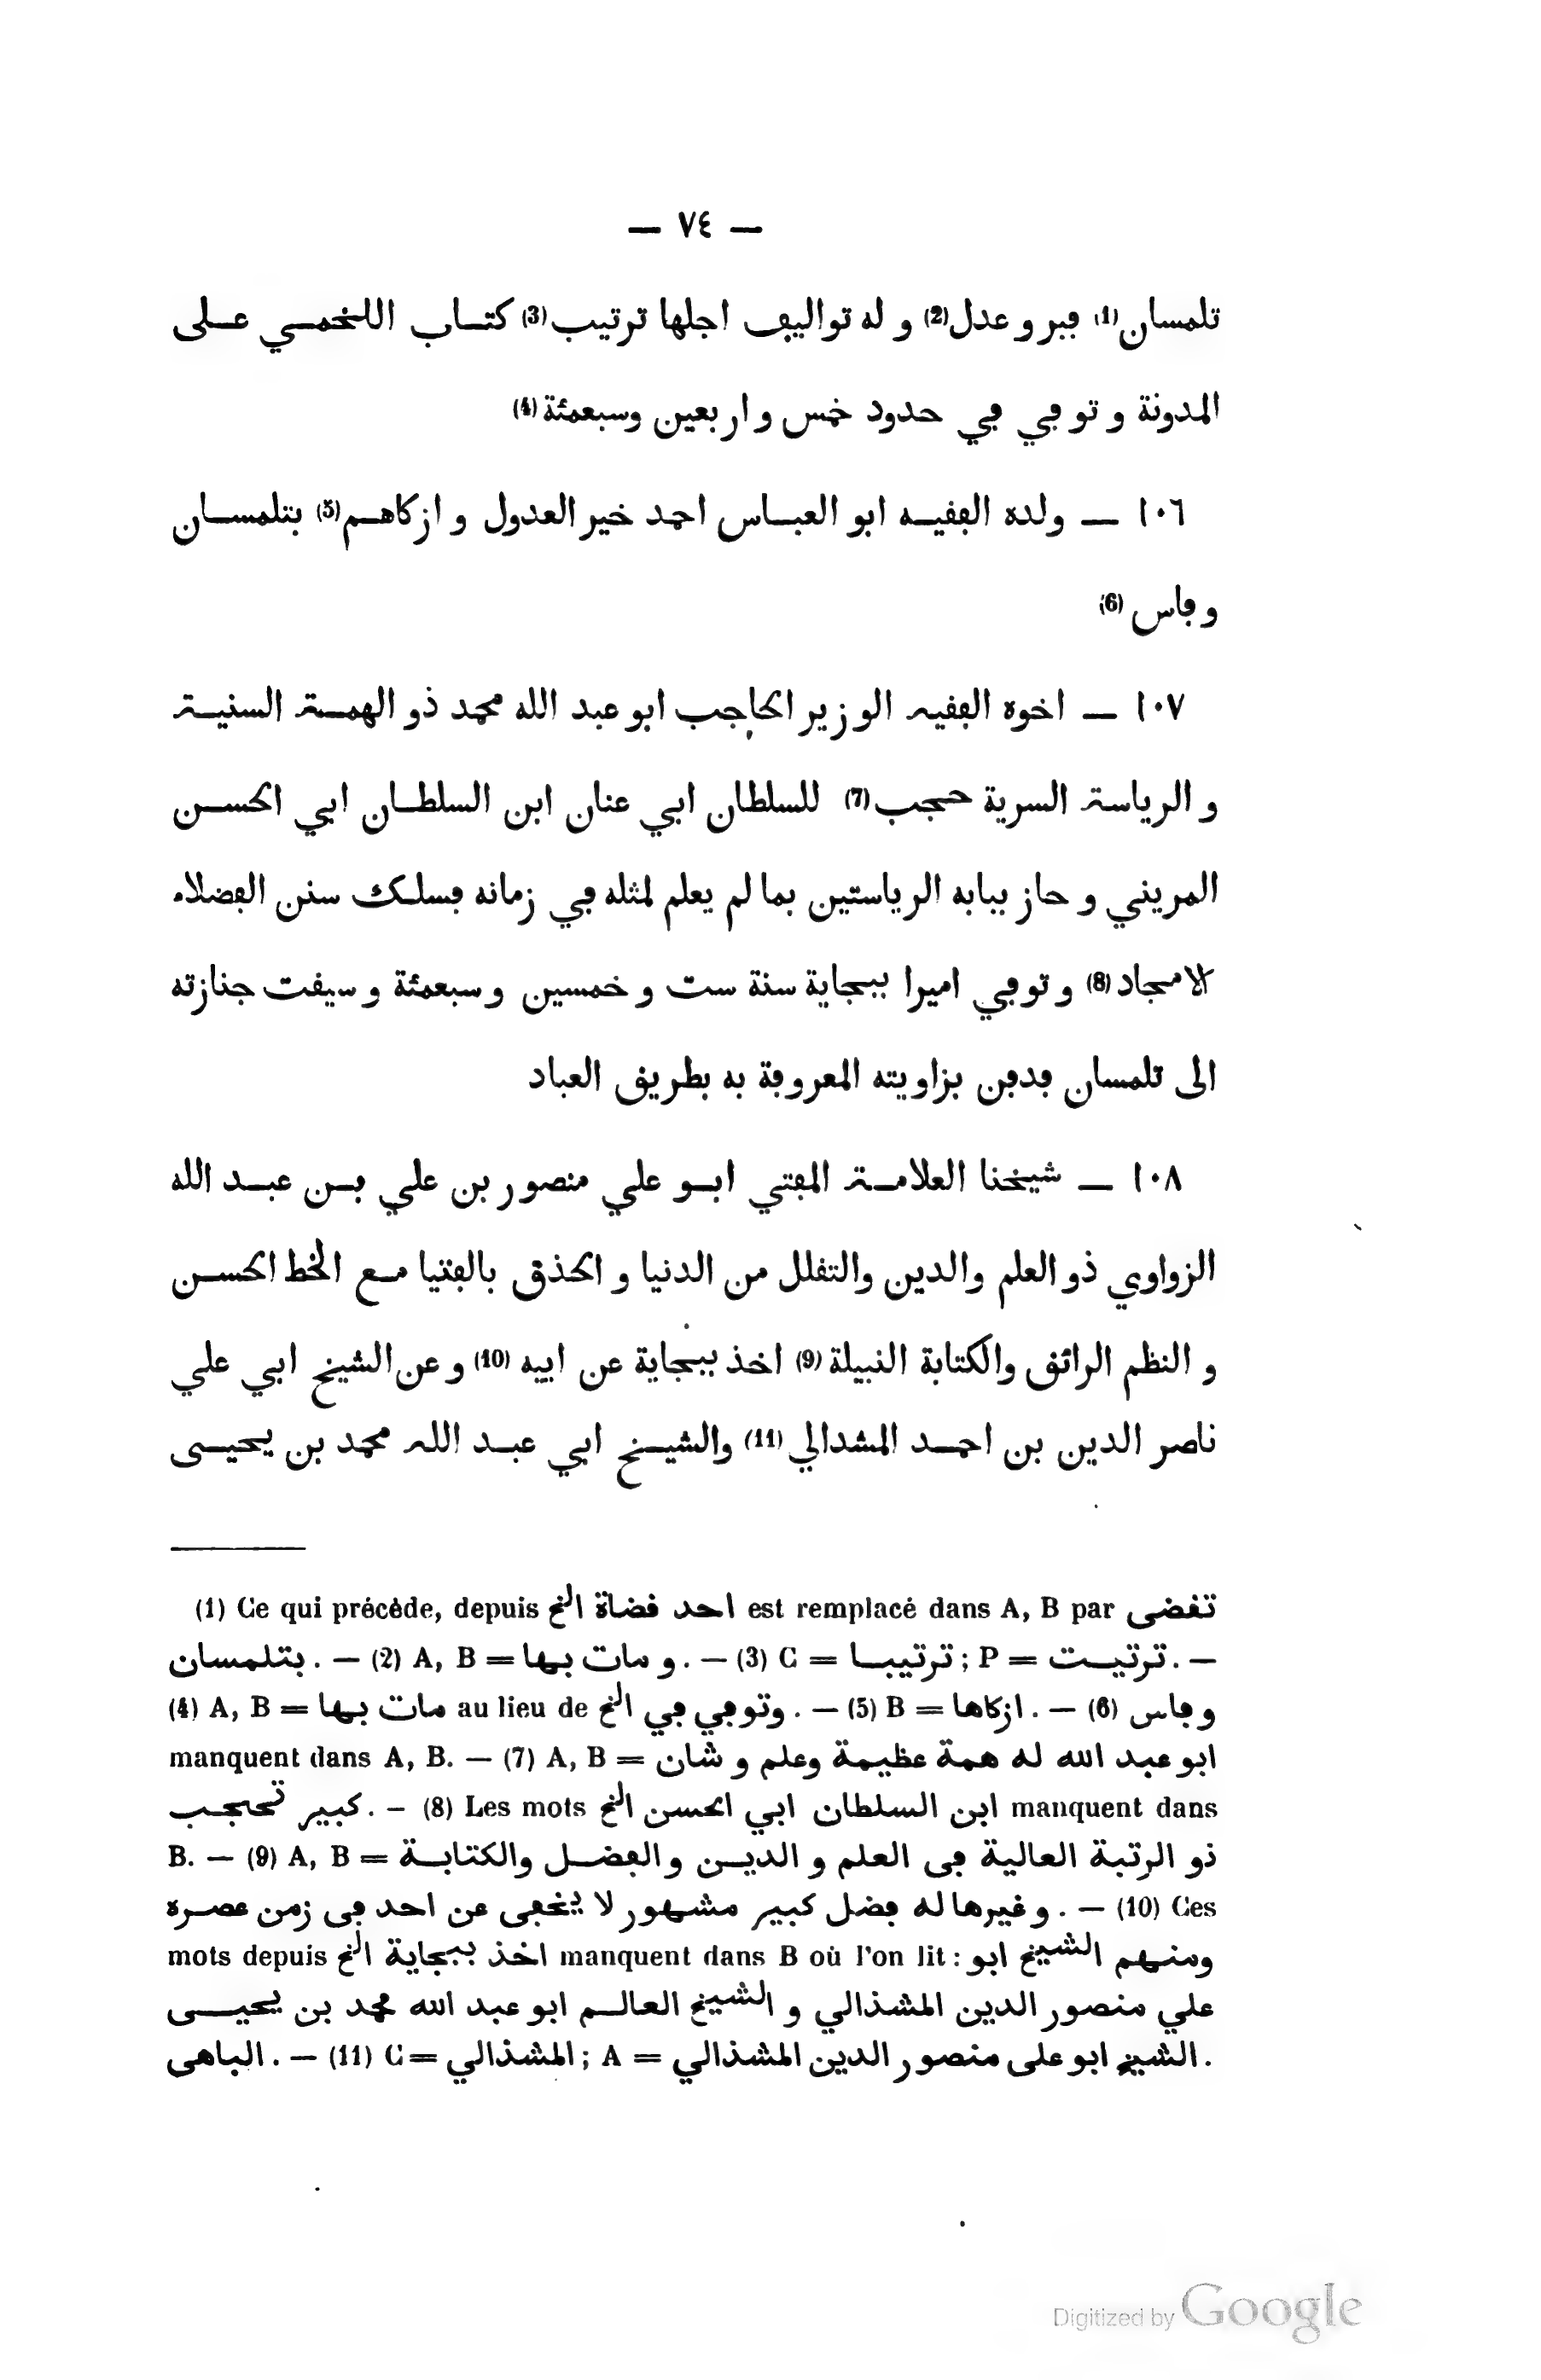 — ٧٤ —
تلمسان (1) فبر و عدل (2) و له تواليف اجلها ترتيب (3) كتاب اللخمي على
المدونة و توفي في حدود خمس و اربعين وسبعمئة (4)
١٠٦ — ولده الفقيه ابو العباس احمد خير العدول و ازكاهم (5) بتلمسان
و فاس (6)
١٠٧ — اخوه الفقيه الوزير الحاجب ابو عبد الله محمد ذو الهمة السنية
و الرياسة السرية حجب (7) للسلطان ابي عنان ابن السلطان ابي الحسن
المريني و حاز ببابه الرياستين بما لم يعلم لمثله في زمانه فسلك سنن الفضلاء
الامجاد (8) و توفي اميرا ببجاية سنة ست و خمسين و سبعمئة و سيقت جنازته
الى تلمسان فدفن بزاويته المعروفة به بطريق العباد
١٠٨ — شيخنا العلامة المفتي ابو علي منصور بن علي بن عبد الله
الزواوي ذو العلم والدين والتقلل من الدنيا و الحذق بالفتيا مع الخط الحسن
و النظم الرائق والكتابة النبيلة (9) اخذ ببجاية عن ابيه (10) و عن الشيخ ابي علي
ناصر الدين بن احمد المشدالي (11) والشيخ ابي عبد الله محمد بن يحيى
(1) Ce qui précède, depuis احد قضاة الخ est remplacé dans A, B par تقضى
بتلمسان . — (2) A, B = و مات بها . — (3) C = ترتيبا ; P = ترتيت . —
(4) A, B = مات بها au lieu de وتوفي في الخ . — (5) B = ازكاها . — (6) وفاس
manquent dans A, B. — (7) A, B = ابو عبد الله له همة عظيمة وعلم و شان
كبير تحجب . — (8) Les mots ابن السلطان ابي الحسن الخ manquent dans
B. — (9) A, B = ذو الرتبة العالية فى العلم و الدين و الفضل والكتابة
وغيرها له فضل كبير مشهور لا يخفى عن احد فى زمن عصره . — (10) Ces
mots depuis اخذ ببجاية الخ manquent dans B où l'on lit : ومنهم الشيخ ابو
علي منصور الدين المشذالي و الشيخ العالم ابو عبد الله محمد بن يحيى
الباهى . — (11) C = المشذالي ; A = الشيخ ابو على منصور الدين المشذالي .
Digitized by Google